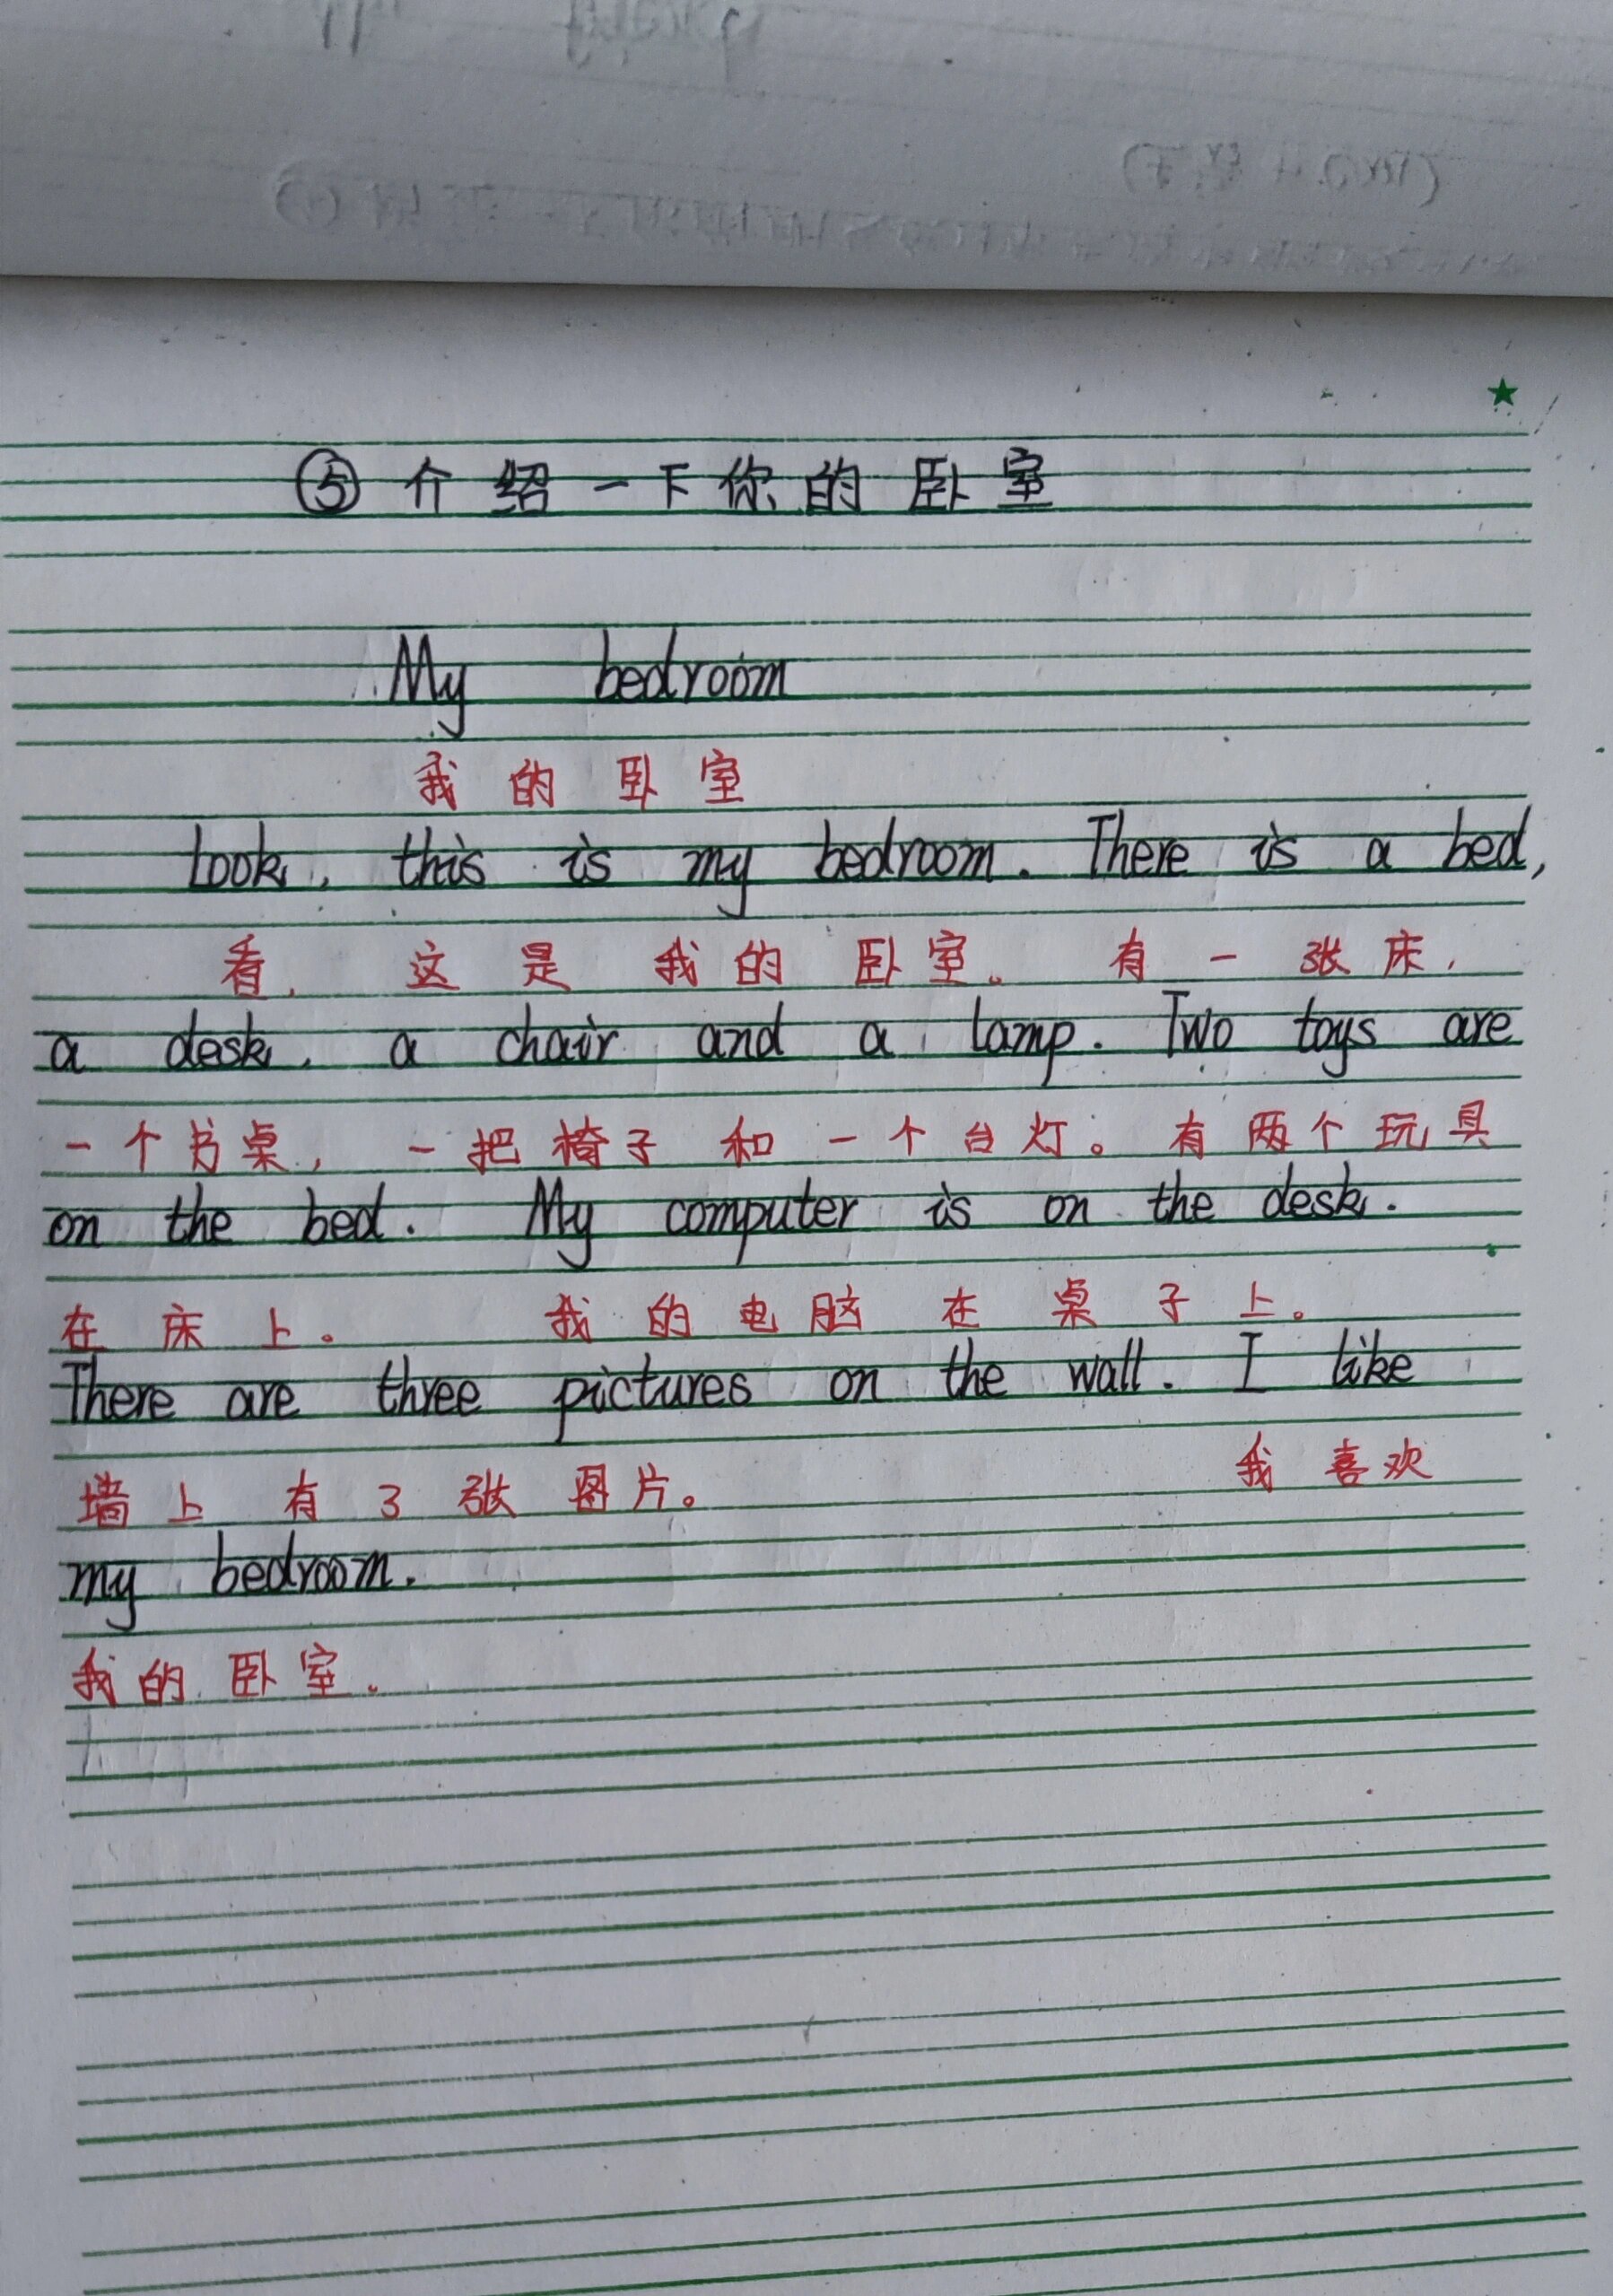 ⑤介绍一下你的卧室
My bedroom
我的卧室
Look, this is my bedroom. There is a bed,
看,这是我的卧室。有一张床,
a desk, a chair and a lamp. Two toys are
一个书桌,一把椅子和一个台灯。有两个玩具
on the bed. My computer is on the desk.
在床上。我的电脑在桌子上。
There are three pictures on the wall. I like
墙上有3张图片。我喜欢
my bedroom.
我的卧室。